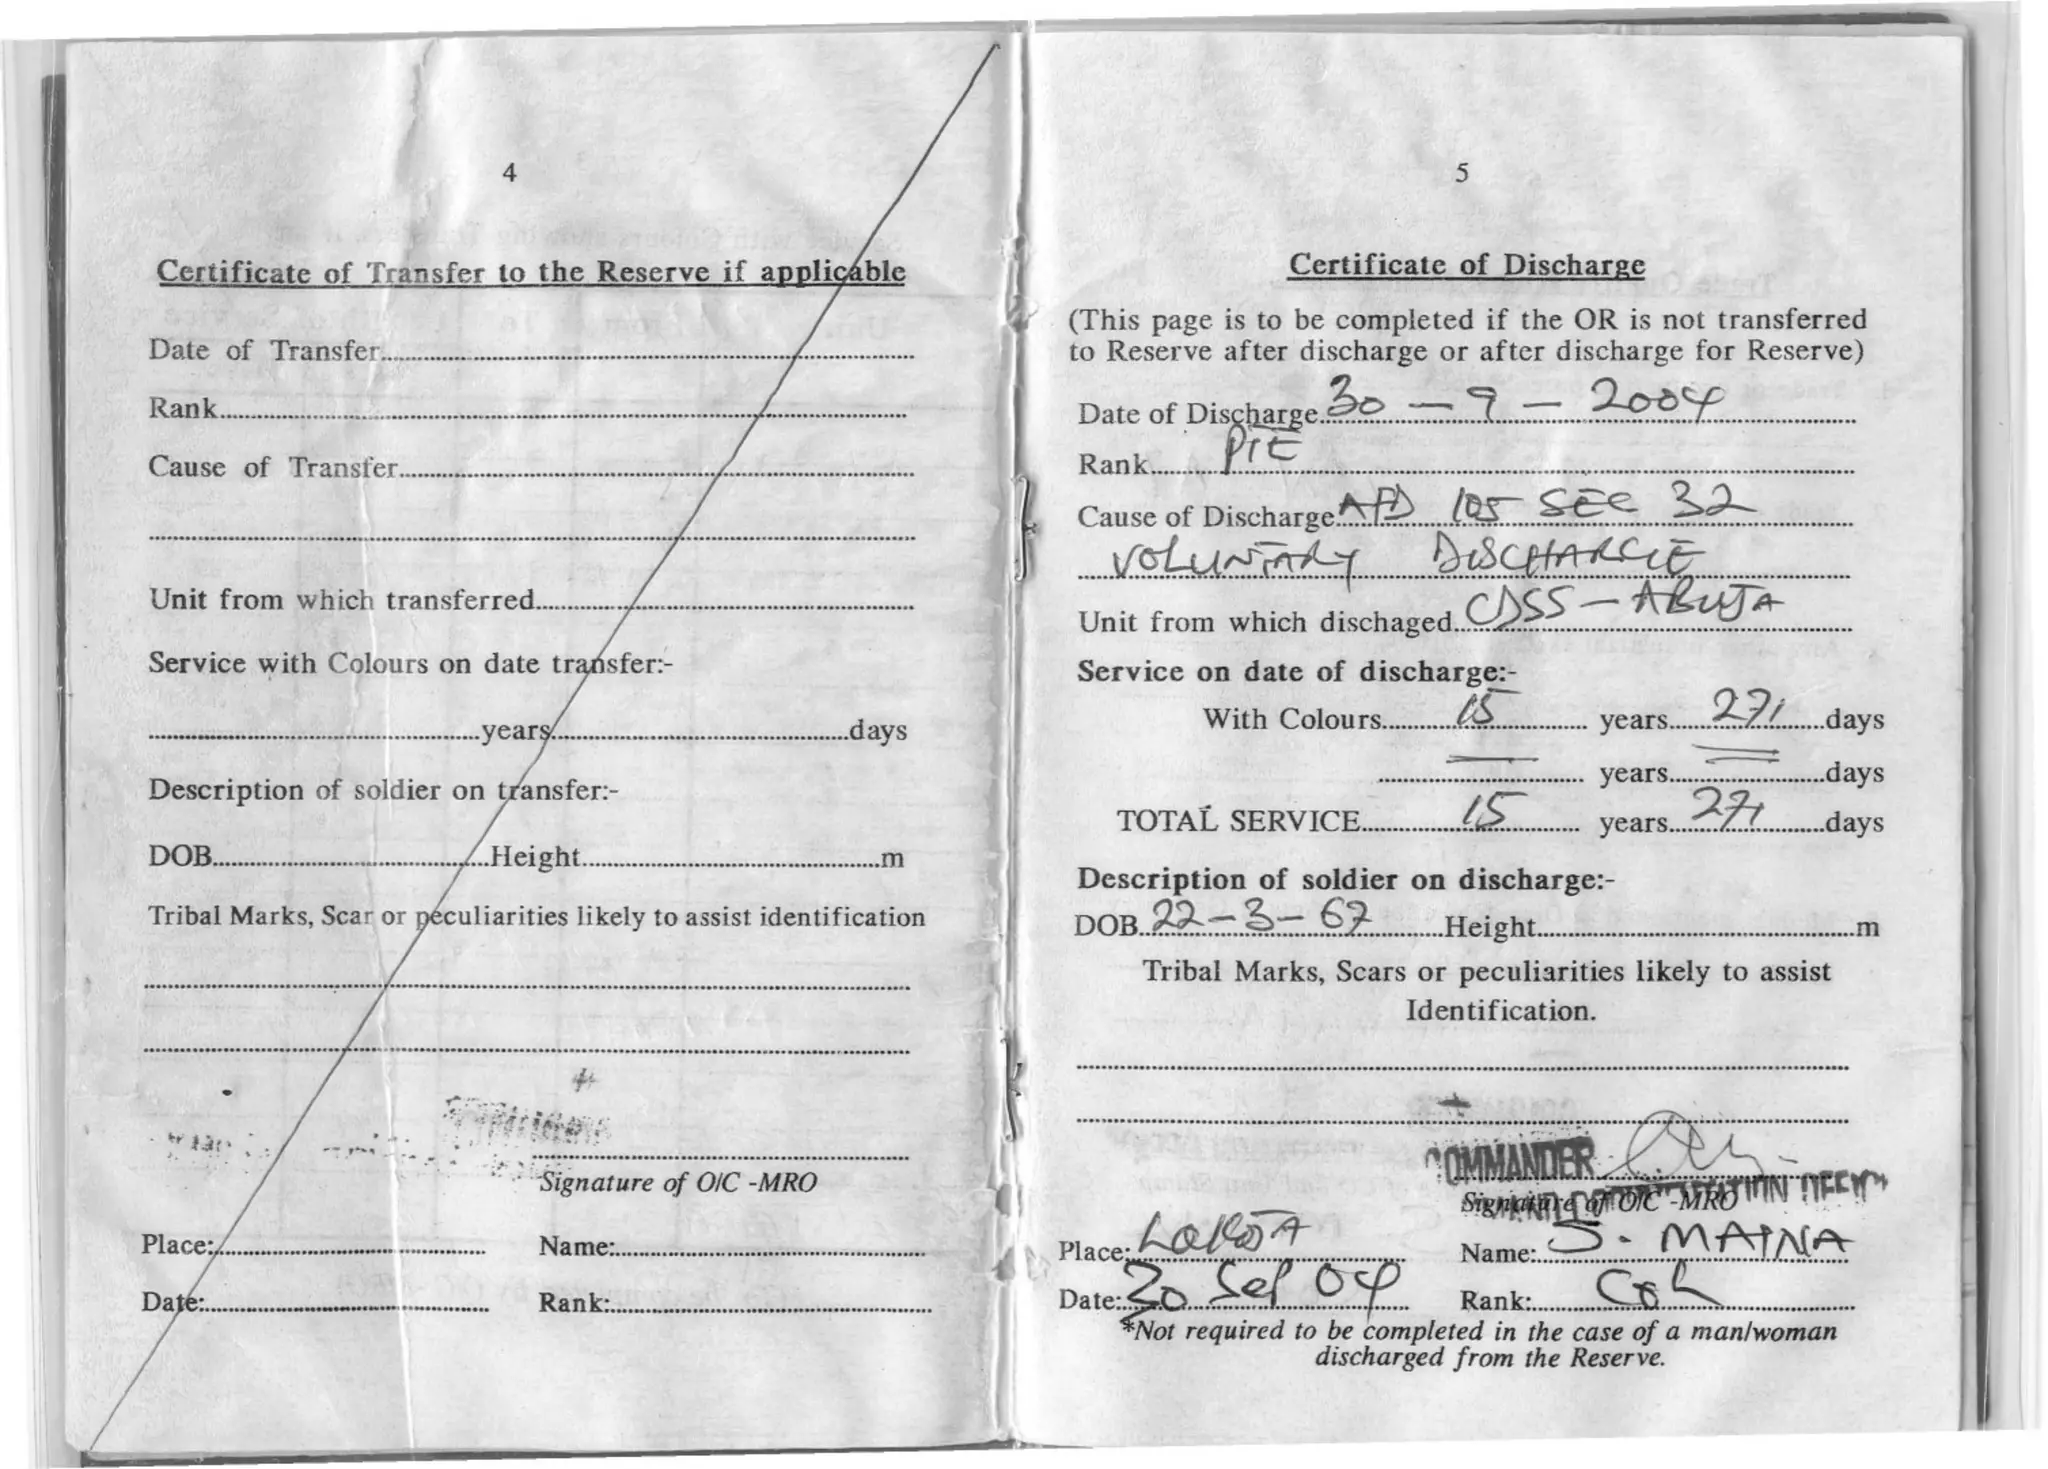 4
Certificate of Transfer to the Reserve if applicable
Date of Transfer
Rank
Cause of Transfer
Unit from which transferred
Service with Colours on date transfer:-
years days
Description of soldier on transfer:-
DOB Height m
Tribal Marks, Scar or peculiarities likely to assist identification
Signature of O/C -MRO
Place: Name:
Date: Rank:
5
Certificate of Discharge
(This page is to be completed if the OR is not transferred
to Reserve after discharge or after discharge for Reserve)
Date of Discharge 30 - 9 - 2004
Rank PTE
Cause of Discharge AFD 105 SEC 32
VOLUNTARY DISCHARGE
Unit from which dischaged CDSS - ABUJA
Service on date of discharge:-
With Colours 15 years 271 days
years days
TOTAL SERVICE 15 years 271 days
Description of soldier on discharge:-
DOB 22-3-67 Height m
Tribal Marks, Scars or peculiarities likely to assist
Identification.
COMMANDER
Signature of O/C -MRO
Place: LOKOJA Name: S. MAINA
Date: 30 Sep 04 Rank: Col
*Not required to be completed in the case of a man/woman
discharged from the Reserve.